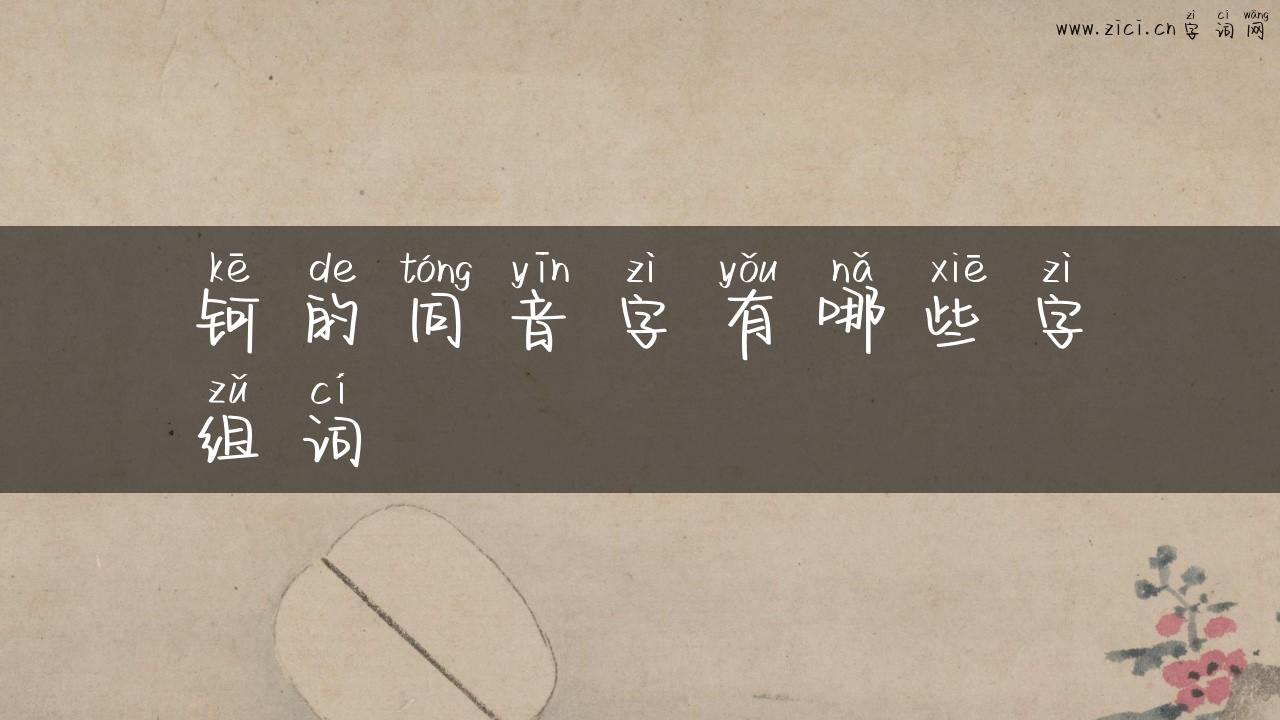 zì cí wǎng
www.zici.cn 字 词 网
kē de tóng yīn zì yǒu nǎ xiē zì
钶 的 同 音 字 有 哪 些 字
zǔ cí
组 词